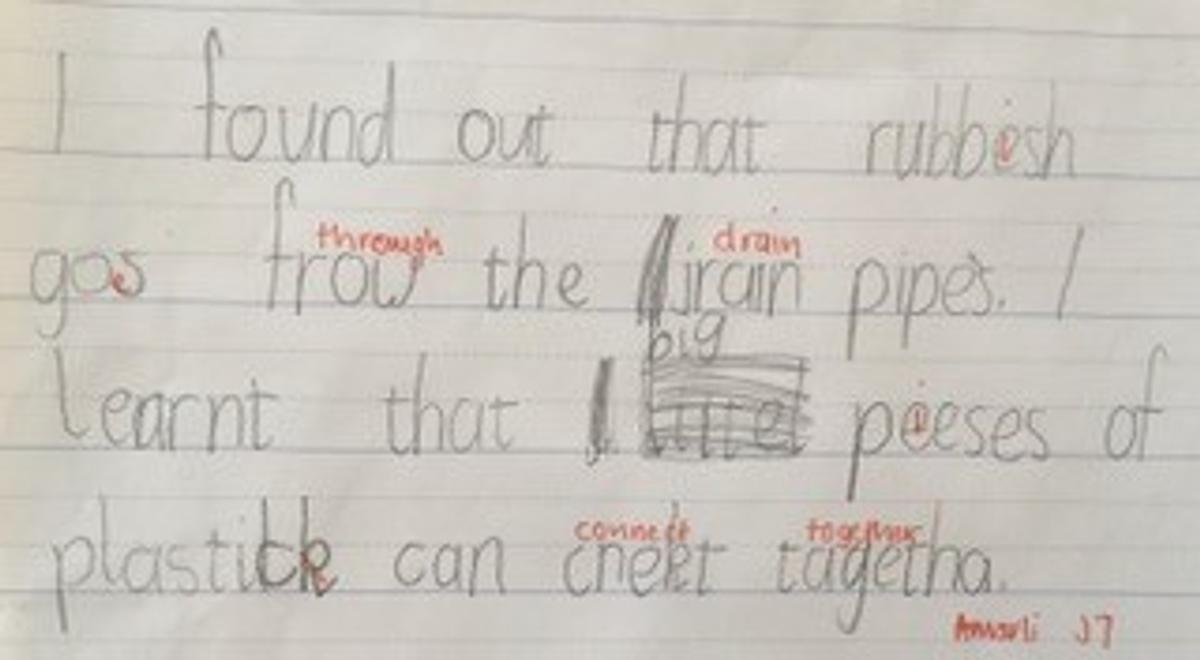 I found out that rubbesh
through drain
gos frow the jrain pipes. I
big
Learnt that peeses of
connect together
plastick can cnekt tagetha.
J7